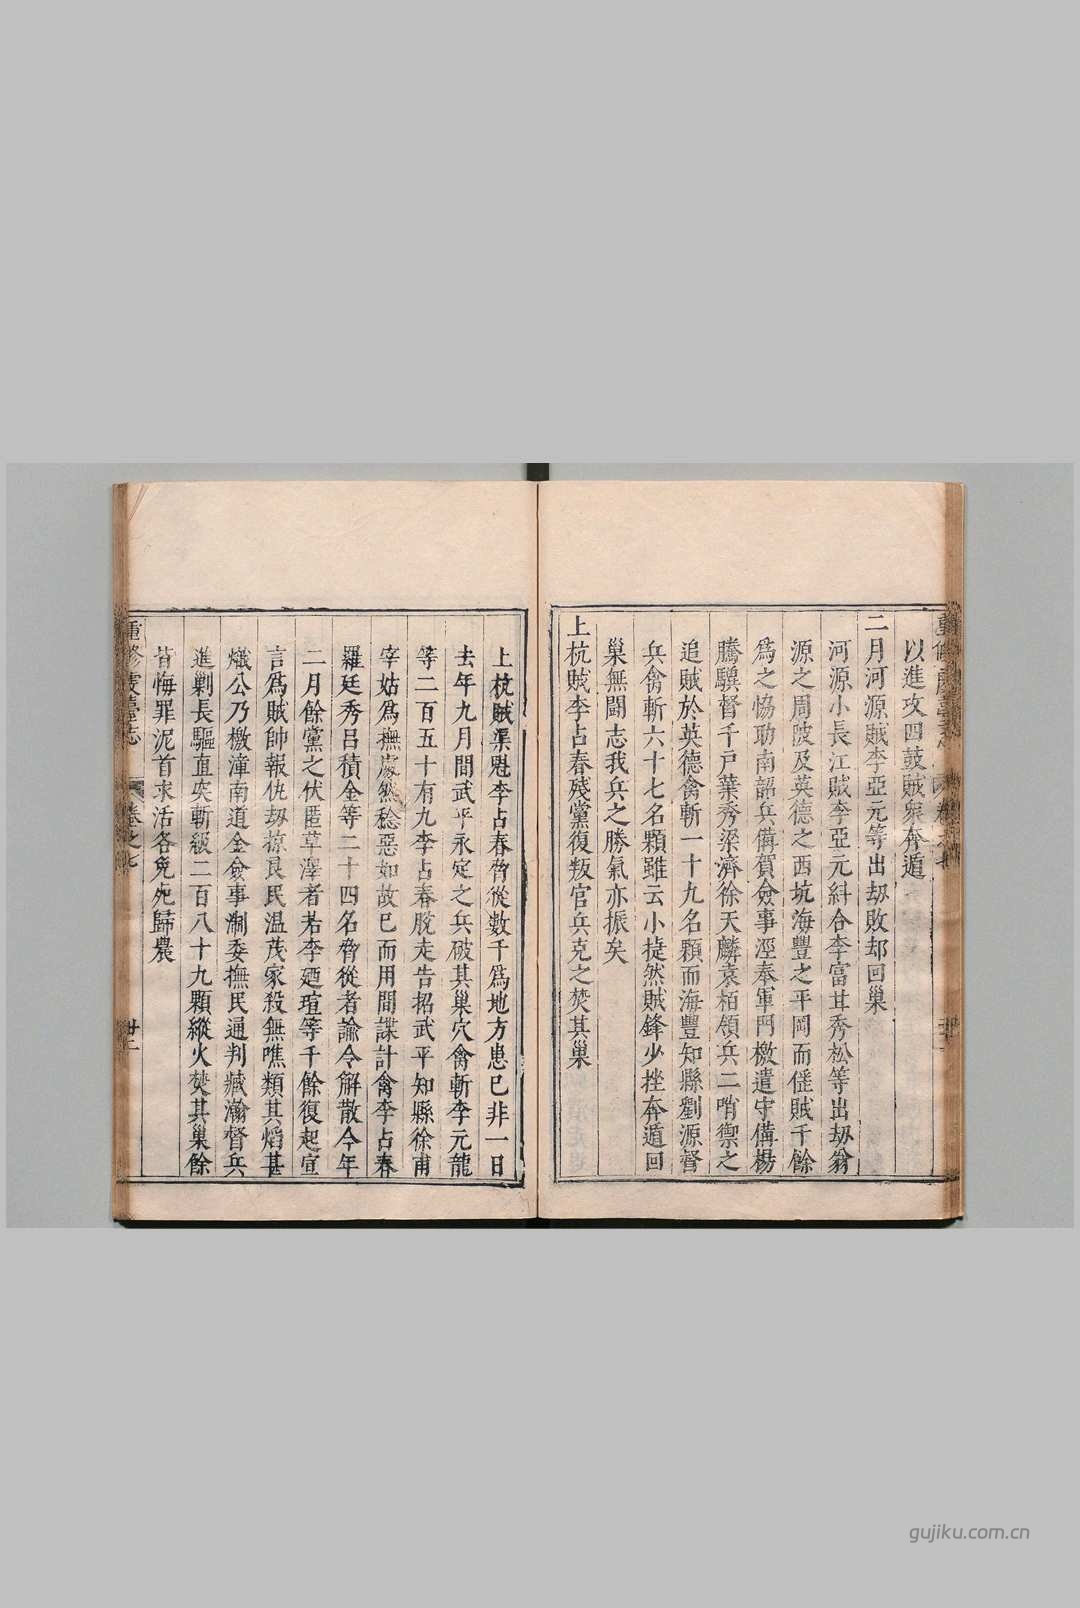 以進攻四鼓賊衆奔遁
二月河源賊李亞元等出刼敗却回巢
河源小長江賊李亞元糾合李富甘秀松等出刼翁
源之周陂及英德之西坑海豐之平岡而傜賊千餘
爲之恊助南韶兵備賀僉事涇奉軍門檄遣守備楊
騰驥督千戸葉秀梁濟徐天麟袁栢領兵二哨禦之
追賊於英德禽斬一十九名顆而海豐知縣劉源督
兵禽斬六十七名顆雖云小捷然賊鋒少挫奔遁回
巢無鬪志我兵之勝氣亦振矣
上杭賊李占春殘黨復叛官兵克之焚其巢
上杭賊渠魁李占春脅從數千爲地方患已非一日
去年九月間武平永定之兵破其巢穴禽斬李元龍
等二百五十有九李占春脫走告招武平知縣徐甫
宰姑爲撫處然稔惡如故已而用間諜計禽李占春
羅廷秀呂積全等二十四名脅從者諭令解散今年
二月餘黨之伏匿草澤者若李廼瑄等千餘復起宣
言爲賊帥報仇刼掠良民温茂家殺無噍類其熖甚
熾公乃檄漳南道金僉事淛委撫民通判臧瀚督兵
進剿長驅直突斬級二百八十九顆縱火焚其巢餘
皆悔罪泥首求活各免死歸農
重修虔臺志
卷之七
廿二
gujiku.com.cn